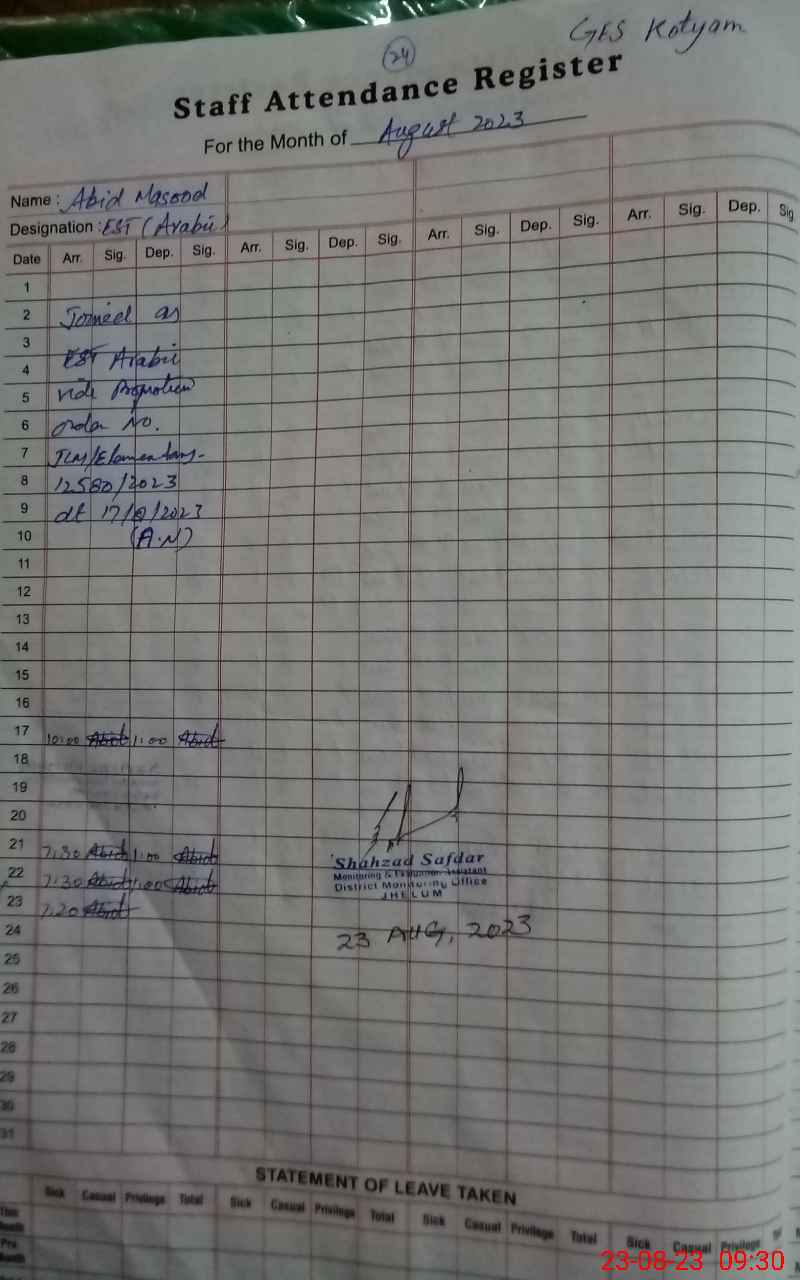 GES Kotyam
24
Staff Attendance Register
For the Month of August 2023
Name : Abid Masood
Designation : EST (Arabic)
Date Arr. Sig. Dep. Sig. Arr. Sig. Dep. Sig. Arr. Sig. Dep. Sig. Arr. Sig. Dep. Sig.
1
2 Joined as
3
4 EST Arabic
5 vide Promotion
6 order No.
7 JLM/Elementary-
8 12580/2023
9 dt 17/8/2023
10 (A.N)
11
12
13
14
15
16
17 10:00 Abid 1:00 Abid
18
19
20
21 7:30 Abid 1:00 Abid
22 7:30 Abid 1:00 Abid
23 7:20 Abid
24
25
26
27
28
29
30
31
Shahzad Safdar
Monitoring & Evaluation Assistant
District Monitoring Office
JHELUM
23 AUG, 2023
STATEMENT OF LEAVE TAKEN
Sick Casual Privilege Total Sick Casual Privilege Total Sick Casual Privilege Total Sick Casual Privilege
This Month
Pre. Month
23-08-23 09:30